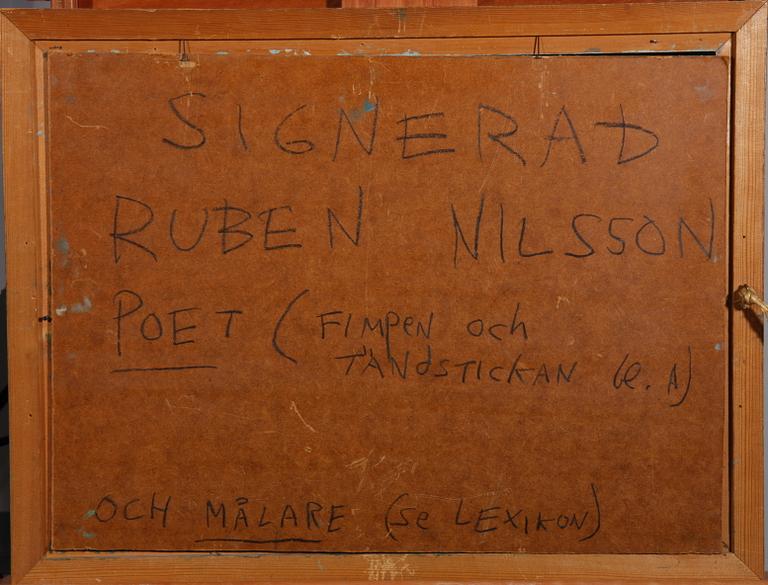 SIGNERAD
RUBEN NILSSON
POET (FIMPEN och
TÄNDSTICKAN bl. A)
OCH MÅLARE (Se LEXIKON)